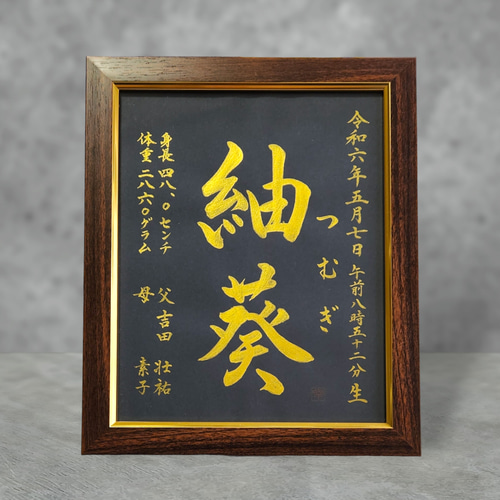 令和六年五月七日 午前八時五十二分生
つむぎ
紬葵
身長 四八.〇センチ
体重 二八六〇グラム
父 吉田 壮祐
母 素子